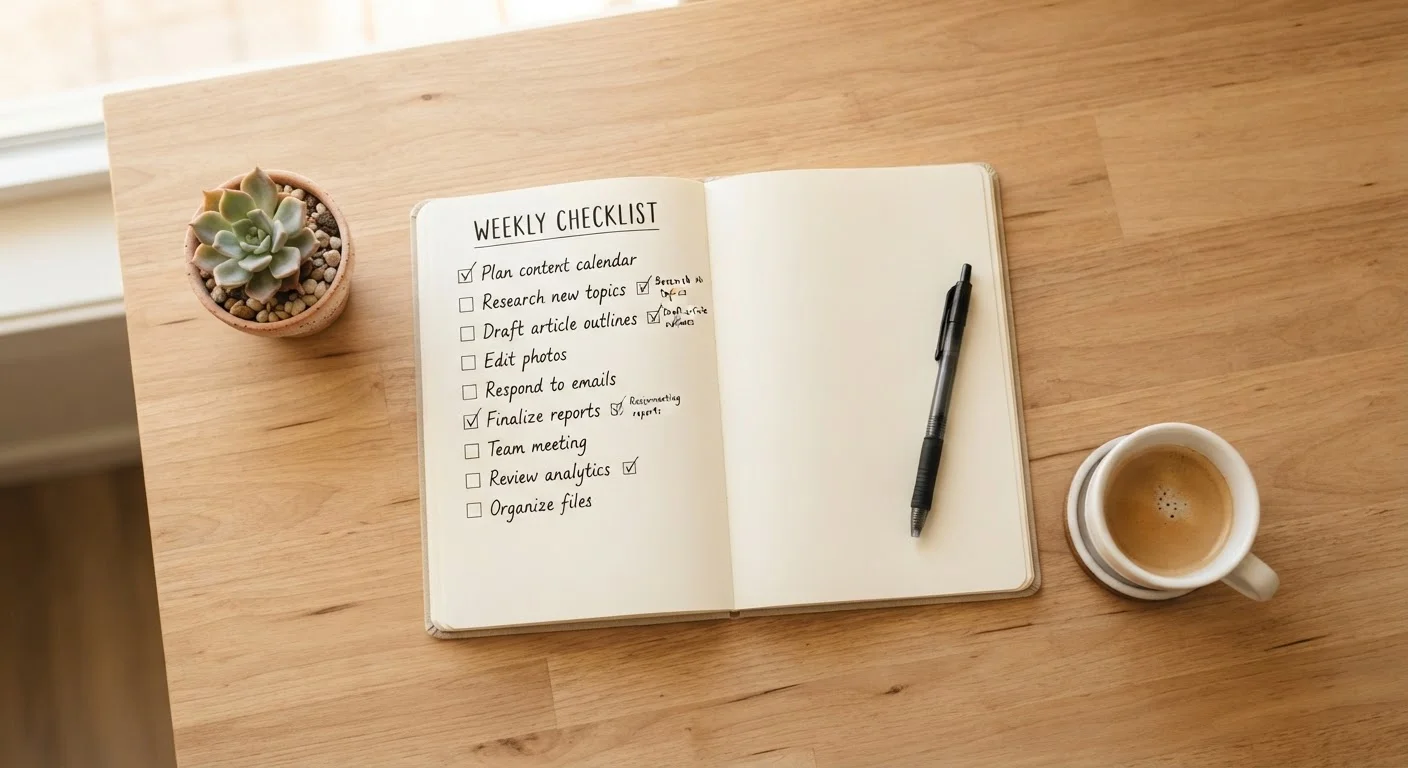 WEEKLY CHECKLIST
Plan content calendar
Research new topics
Draft article outlines
Edit photos
Respond to emails
Finalize reports
Team meeting
Review analytics
Organize files